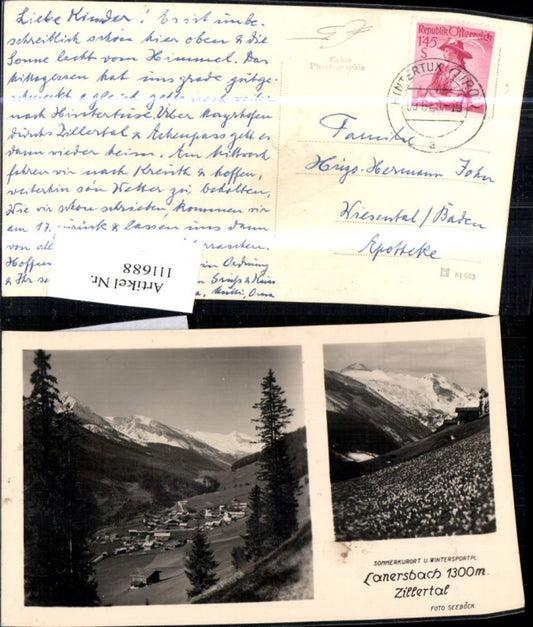 Liebe Kinder! Es ist unbe-
schreiblich schön hier oben & die
Sonne lacht vom Himmel. Das
Mittagessen hat uns grade gutge-
schmeckt & gleich geht's noch weiter
nach Hintertux. Über Mayrhofen
durchs Zillertal & Achenpass geht es
dann wieder heim. Am Mittwoch
fahren wir nach Kreuth & hoffen,
weiterhin so'n Wetter zu behalten.
Wie wir schon schrieben, kommen wir
am 17. zurück & lassen uns dann
von
Hoffen in Ordnung
& Ihr Gruß & Küss
Mutti, Oma
Echte
Photographie
Republik Österreich
1.45
S
HINTERTUX (TIROL)
a
Familie
Hugo-Hermann John
Wiesental/Baden
Apotheke
Artikel Nr.
111688
SOMMERKURORT U. WINTERSPORTPL.
Lanersbach 1300m.
Zillertal
FOTO SEEBÖCK